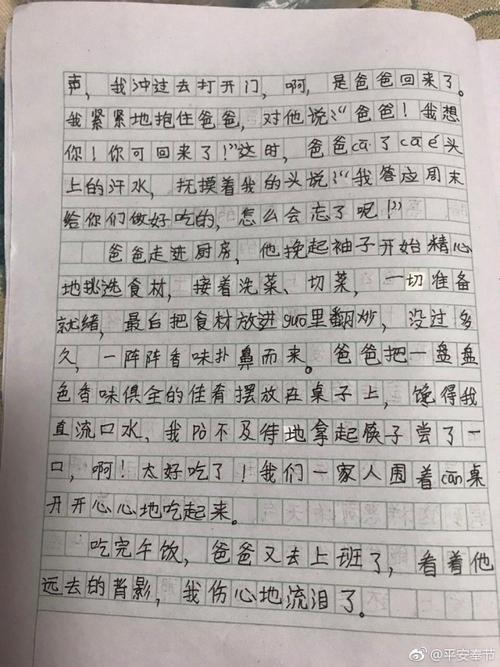 声，我冲过去打开门，啊，是爸爸回来了。
我紧紧地抱住爸爸，对他说：“爸爸！我想
你！你可回来了！”这时，爸爸cā了cā é头
上的汗水，抚摸着我的头说：“我答应周末
给你们做好吃的，怎么会忘了呢！”
爸爸走进厨房，他挽起袖子开始精心
地挑选食材，接着洗菜、切菜，一切准备
就绪，最后把食材放进guo里翻炒，没过多
久，一阵阵香味扑鼻而来。爸爸把一盘盘
色香味俱全的佳肴摆放在桌子上，馋得我
直流口水，我pò不及待地拿起筷子尝了一
口，啊！太好吃了！我们一家人围着cān桌
开开心心地吃起来。
吃完午饭，爸爸又去上班了，看着他
远去的背影，我伤心地流泪了。
@平安奉节